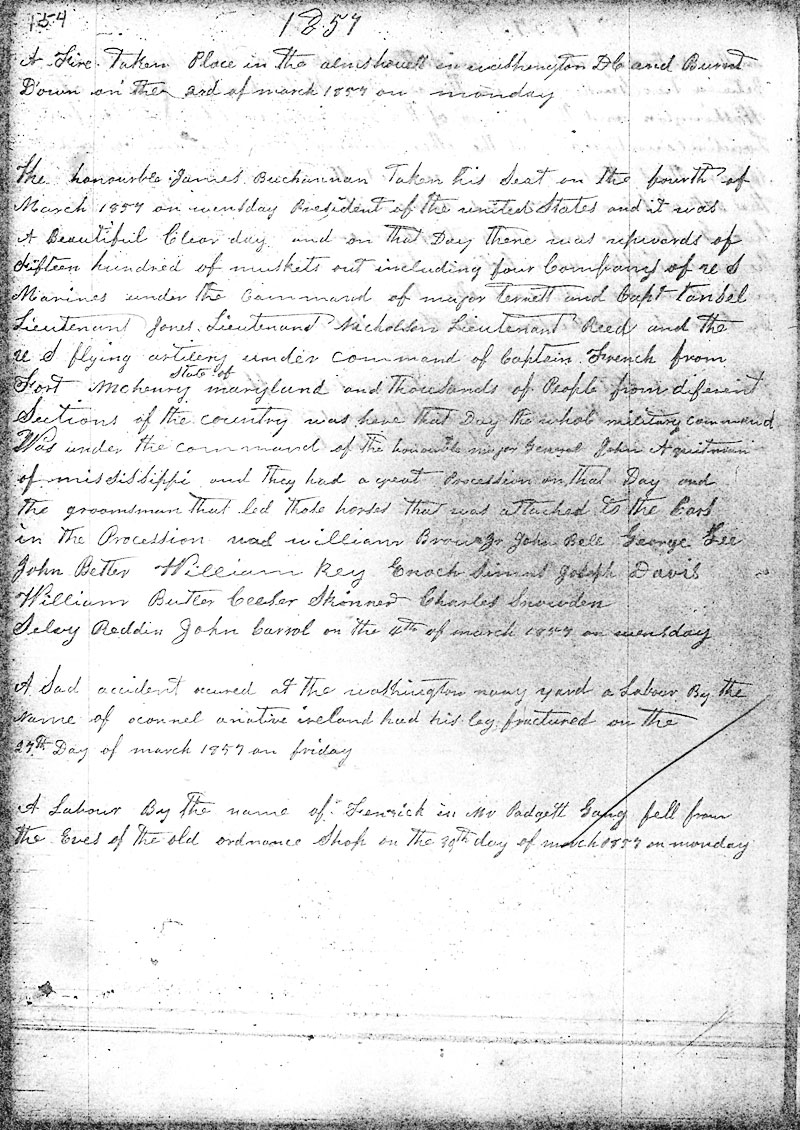 154
1857
A Fire Taken Place in the almshouse in washington DC and Burnt
Down on the 2rd of march 1857 on monday
the honourble James Buchannan Taken his Seat on the fourth of
March 1857 on wensday President of the united States and it was
A Beautiful Clear day and on that Day there was upwards of
fifteen hundred of muskets out including four Company of u S
Marines under the Command of major terrett and Capt tansel
Lieutenant Jones Lieutenant Nicholson Lieutenant Reed and the
u S flying artilery under command of Captain French from
State of
Fort Mchenry maryland and thousands of People from diferent
Sections of the country was here that Day the whole military command
Was under the command of the honourble major General John A quitman
of mississippi and they had a great Procession on that Day and
the groomsman that led those horses that was attached to the Cars
in the Procession was william Brown Jr John Bell George Lee
John Betler William Key Enoch Simms Joseph Davis
William Butler Ceeser Skinner Charles Snowden
Selvy Reddin John Carrol on the 4th of march 1857 on wensday
A Sad accident ocured at the washington navy yard a Labour By the
Name of oconnel a native ireland had his leg fractured on the
27th Day of march 1857 on friday
A Labour By the name of Fenrick in Mr Padgett Gang fell from
the Eves of the old ordnance Shop on the 30th day of march 1857 on monday